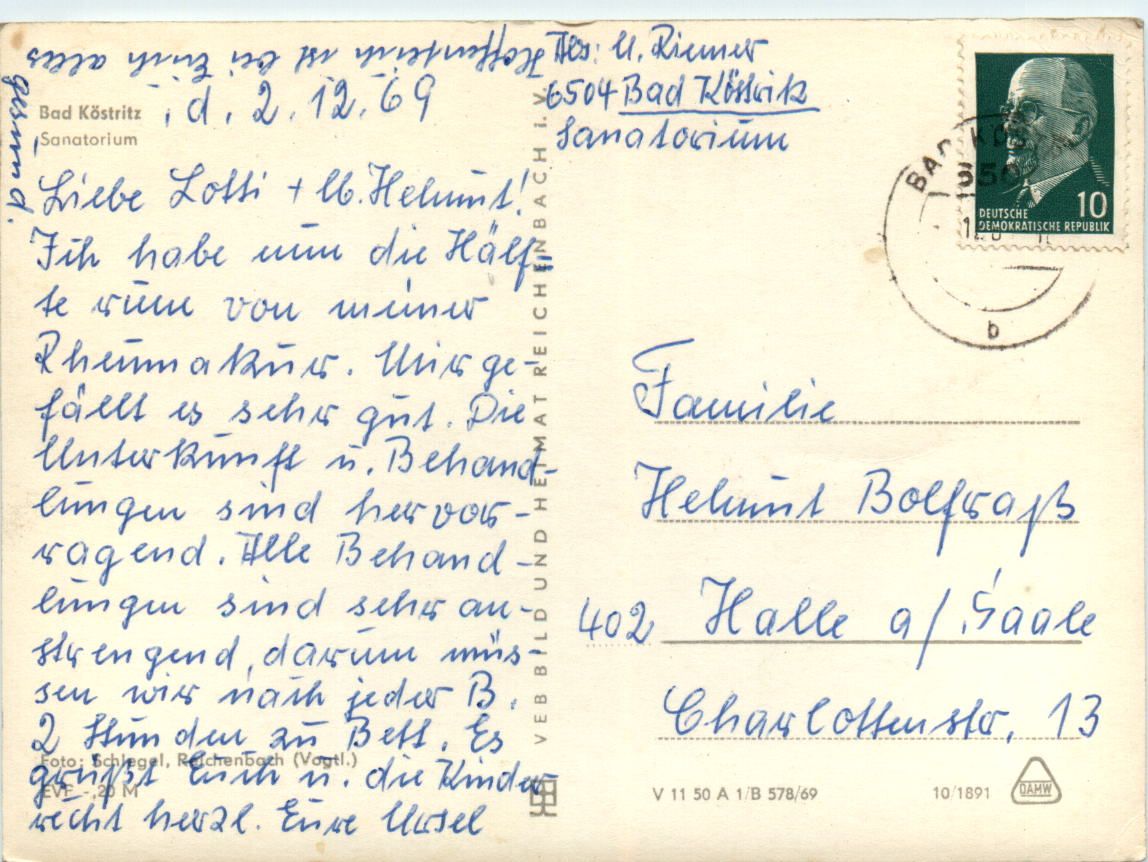 Bad Köstritz, d. 2.12.69
Sanatorium
Liebe Lotti + lb. Helmut!
Ich habe nun die Hälf-
te rum von meiner
Rheumakur. Mir ge-
fällt es sehr gut. Die
Unterkunft u. Behand-
lungen sind hervor-
ragend. Alle Behand-
lungen sind sehr an-
strengend, darum müs-
sen wir nach jeder B.
2 Stunden zu Bett. Es
grüßt Euch u. die Kinder
recht herzl. Eure Ursel
Hoffentlich ist bei Euch alles
gesund.
Foto: Schlegel, Reichenbach (Vogtl.)
EVP -,20 M
VEB BILD UND HEIMAT REICHENBACH i. V.
Abs: U. Riemer
6504 Bad Köstritz
Sanatorium
10
DEUTSCHE
DEMOKRATISCHE REPUBLIK
BAD KÖS
650
b
Familie
Helmut Bolfraß
402 Halle a/Saale
Charlottenstr. 13
V 11 50 A 1/B 578/69
10/1891
DAMW